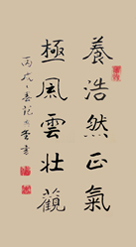 養浩然正氣
極風雲壯觀
丙戌春範曾書